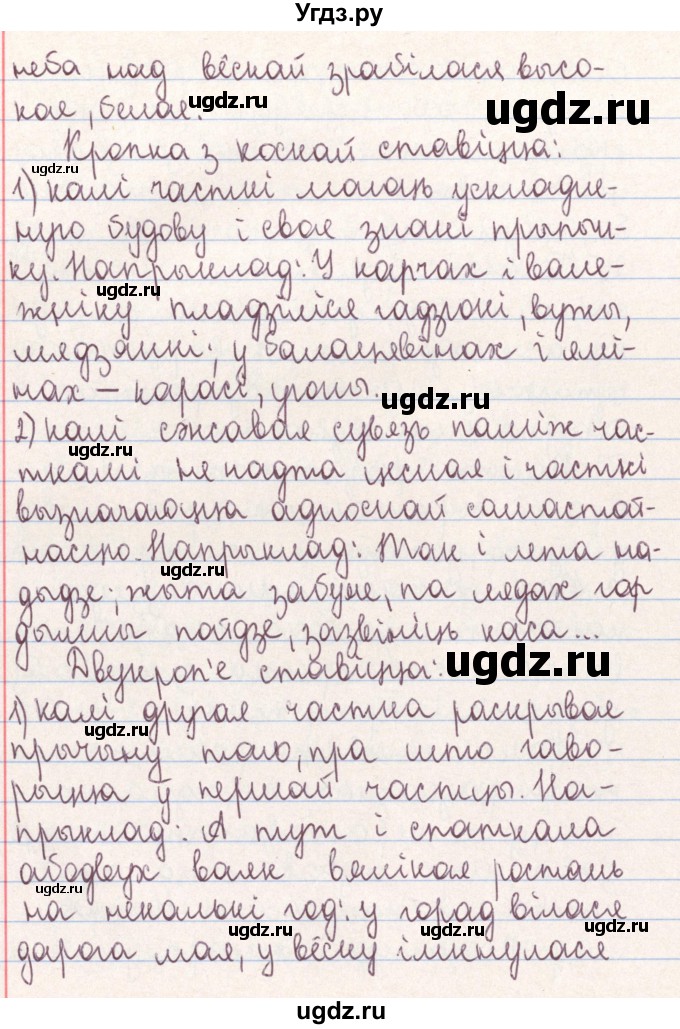 Угдз.ру
неба над вёскай зрабілася высо-
кае, белае.
ugdz.ru
ugdz.ru
Кропка з коскай ставіцца:
ugdz.ru
1) калі часткі маюць ускладне-
ную будову і свае знакі прыпын-
ку. Напрыклад: У карчах і вале-
ugdz.ru
жніку пладзіліся гадзюкі, вужы,
мядзянкі; у балацявінах і ялі-
нах – карасі, уюны.
ugdz.ru
2) калі сэнсавая сувязь паміж час-
ugdz.ru
ткамі не надта цесная і часткі
вызначаюцца адноснай самастой-
насцю. Напрыклад: Так і лета на-
ugdz.ru
дыдзе; жыта забуяе, па лядах гор
дымны пойдзе, зазвініць каса...
Двукроп'е ставіцца:
ugdz.ru
1) калі другая частка раскрывае
прычыну таго, пра што гаво-
рыцца ў першай частцы. На-
прыклад: А тут і спаткала
абодвух ваяк вялікая ростань
ugdz.ru
на некалькі год: у горад вілася
ugdz.ru
ugdz.ru
дарога мая, у вёску імкнулася
ugdz.ru